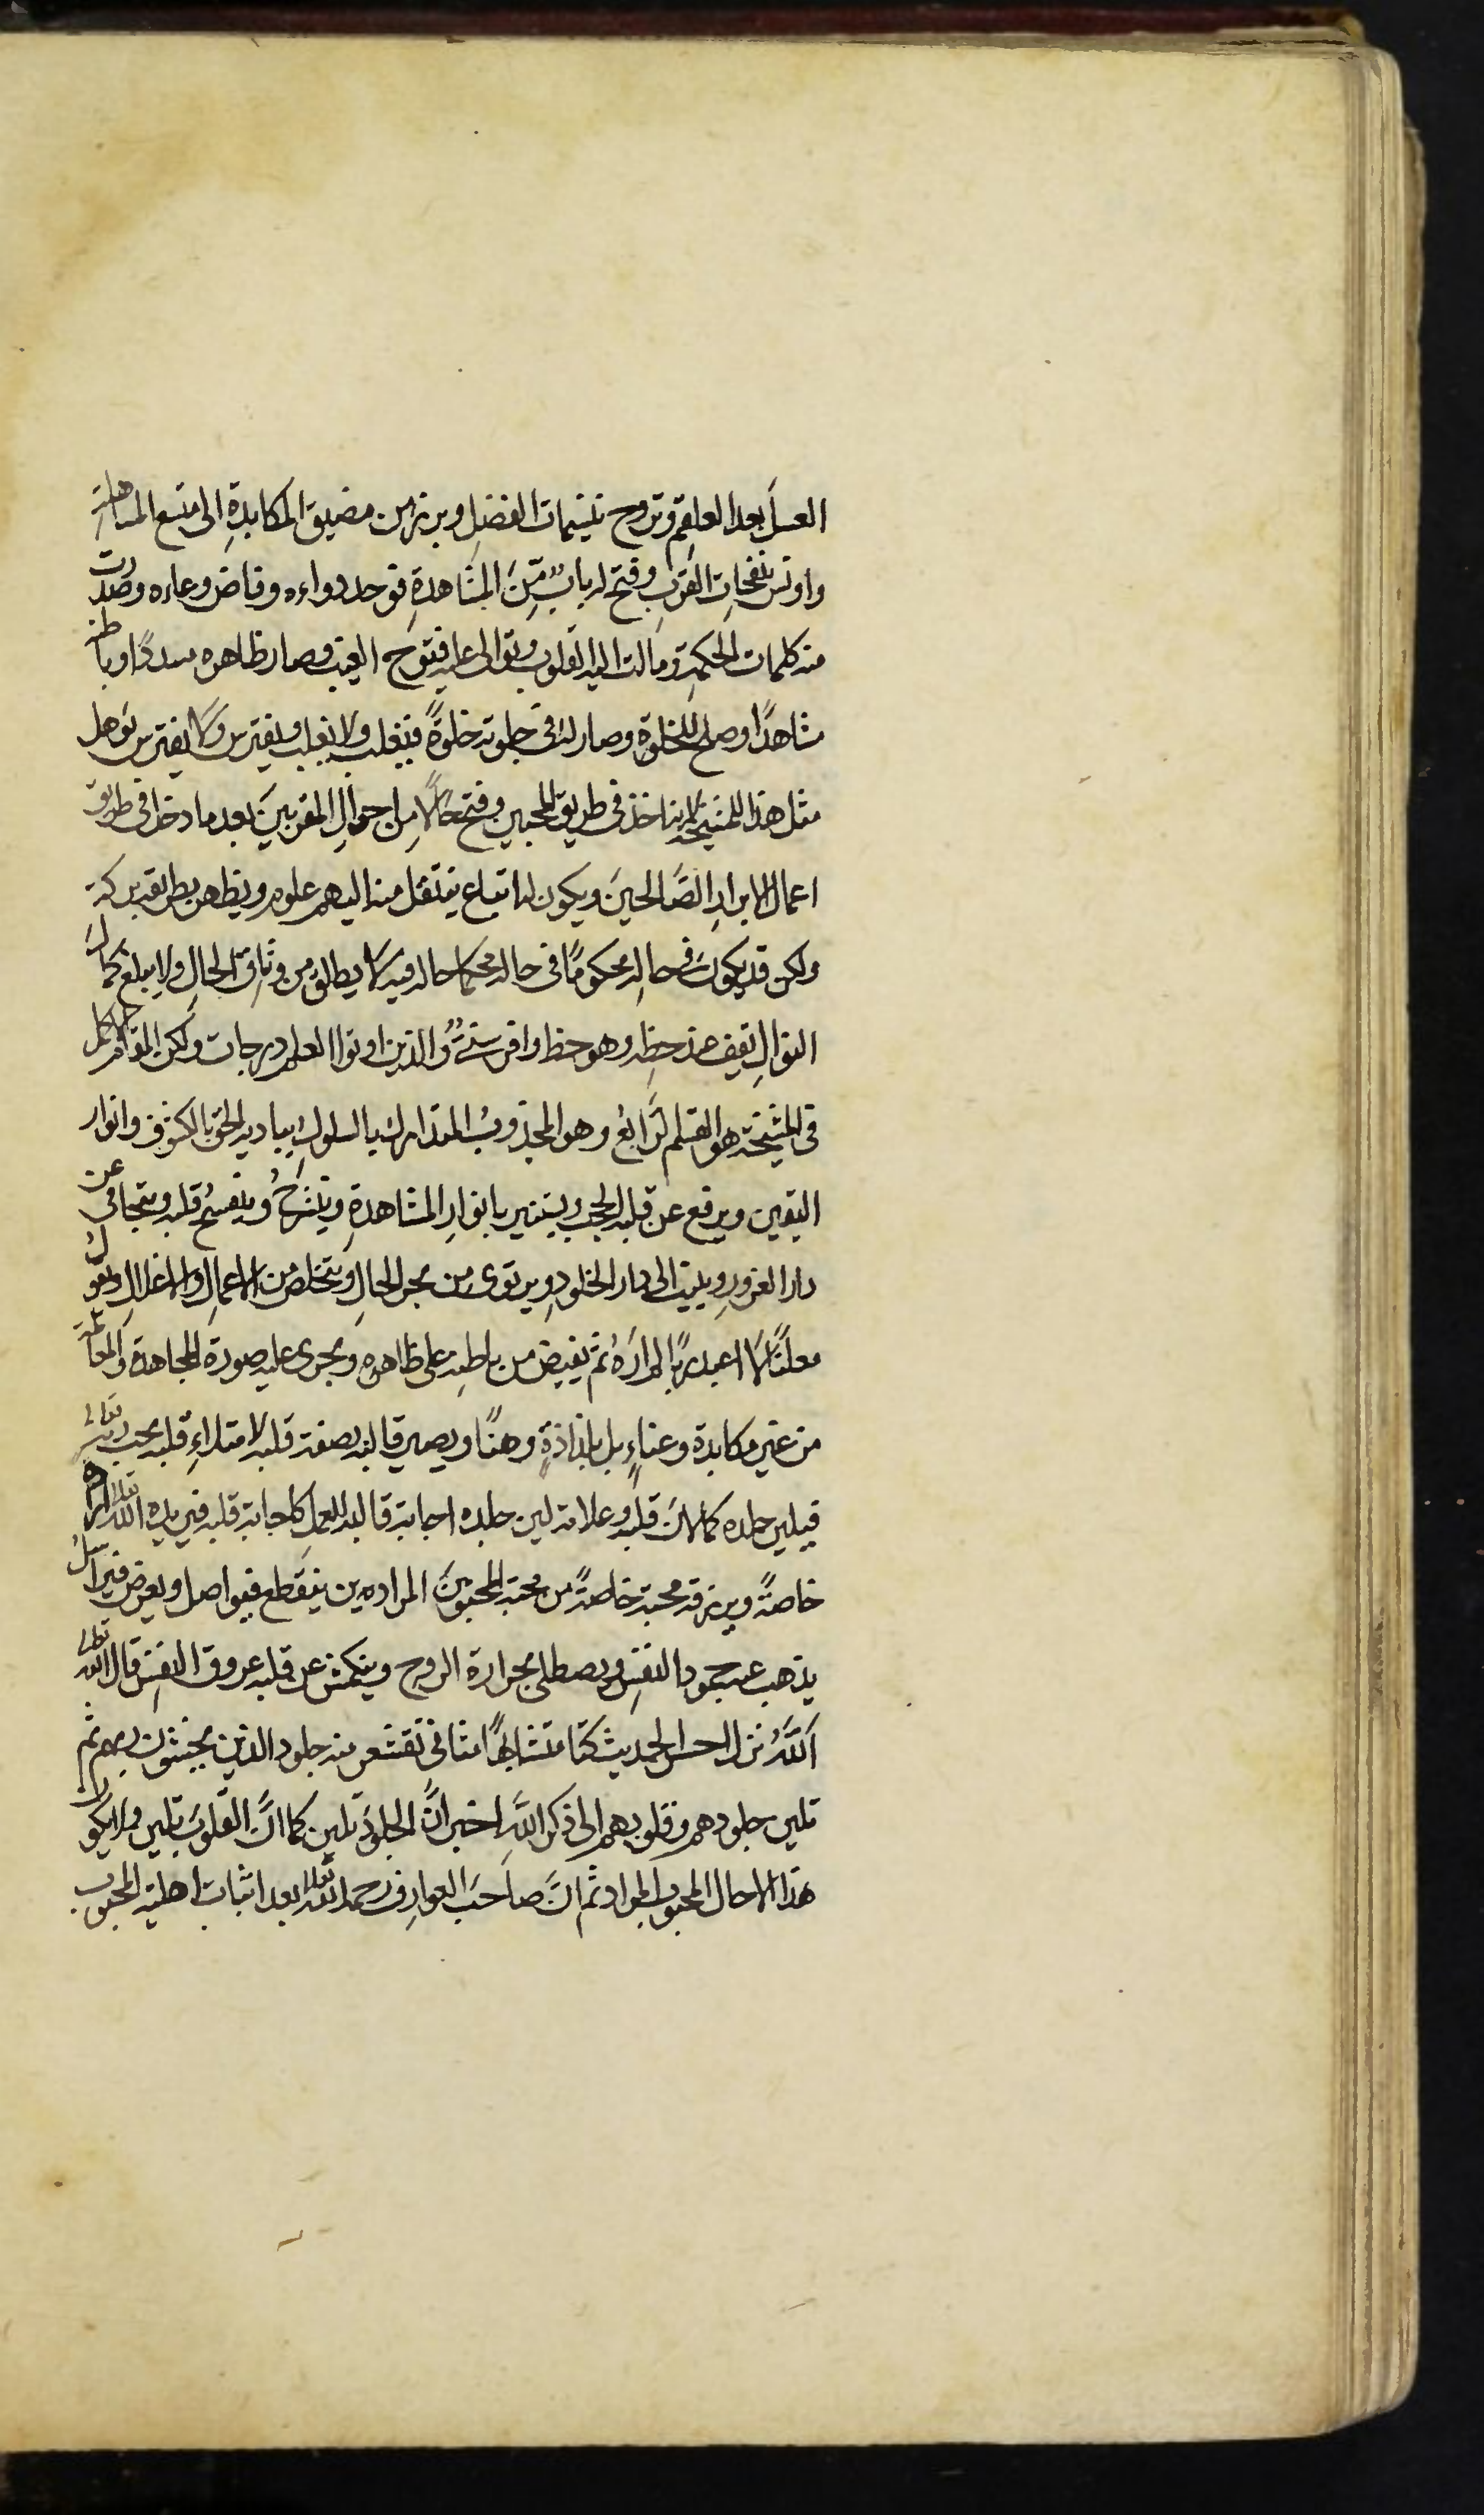 العسل بعد العلقم وتروح بنسيمات الفضل وبرز من مضيق المكابدة الى متسع المساهلة
واونس بنفحات القرب وفتح له باب من المشاهدة فوجد دواءه وفاض وعاءه وصدرت
منه كلمات الحكمة ومالت اليه القلوب وتوالى عليه فتوح الغيب وصار ظاهره مسددًا وباطنه
مشاهدًا وصلح للخلوة وصار له في جلوته خلوةً فيغلب ولا يغلب ويفترس ولا يفترس يؤهل
مثل هذا للمشيخة لانه اخذ في طريق المحبين وفتح حالًا من احوال المقربين بعد ما دخل في طريق
اعمال الابرار الصالحين ويكون له اتباع ينتقل منه اليهم علوم ويظهر بطريقه بركة
ولكن قد يكون في حاله محكومًا في حاله محكما حاله فيه لا يطلق من وثاق الحال ولا يبلغ كمال
النوال يقف عند حظه وهو حظ وافر سنيّ والذين اوتوا العلم درجات ولكن المقام الاكمل
في المشيخة هو القسم الرابع وهو المجذوب المتدارك بالسلوك يباديه الحق بالكشوف وانوار
اليقين ويرفع عن قلبه الحجب ويستنير بانوار المشاهدة وينشرح وينفسح قلبه ويتجافى عن
دار الغرور وينيب الى دار الخلود ويرتوى من بحر الحال ويتخلص من الاعمال والاغلال ويقول
معلنًا لا اعبد ربًا لم اره ثم يفيض من باطنه على ظاهره ويجرى عليه صورة المجاهدة والمعاملة
من غير مكابدة وعناءٍ بل بلذاذةٍ وهنًا ويصير قالبه بصفة قلبه لامتلاء قلبه بحب ربه تعالى
فيلين جلده كما لان قلبه وعلامة لين جلده اجابة قالبه للعمل كاجابة قلبه فيريده الله تعالى ارادة
خاصةً ويرزقه محبة خاصةً من محبة المحبوبين المرادين ينقطع فيواصل ويعرض فيراسل
يذهب عنه جمود النفس ويصطلى بحرارة الروح وينكمش عن قلبه عروق النفس قال الله تعالى
الله نزل احسن الحديث كتابا متشابهًا مثاني تقشعر منه جلود الذين يخشون ربهم ثم
تلين جلودهم وقلوبهم الى ذكر الله اخبر ان الجلود تلين كما ان القلوب تلين ولا يكون
هذا الا حال المحبوب المراد ثم ان صاحب العوارف رحمه الله تعالى بعد اثبات اهلية المحبوب